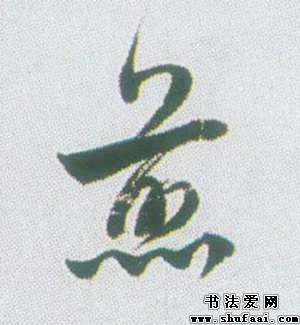 煎
书法爱网
www.shufaai.com